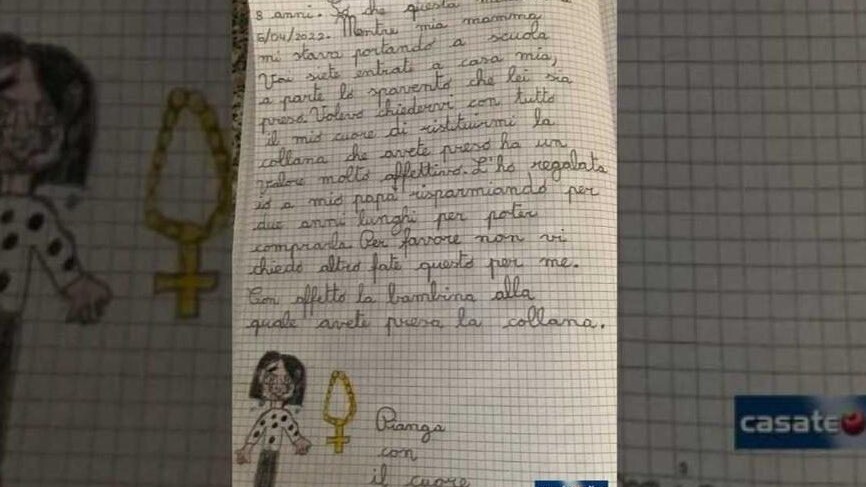 8 anni. So che questa
5/04/2022. Mentre mia mamma
mi stava portando a scuola
Voi siete entrati a casa mia,
a parte lo spavento che lei sia
presa. Volevo chiedervi con tutto
il mio cuore di ristituirmi la
collana che avete preso ha un
valore molto affettivo. L'ho regalata
io a mio papà risparmiando per
due anni lunghi per poter
comprarla. Per favore non vi
chiedo altro fate questo per me.
Con affetto la bambina alla
quale avete presa la collana.
Pianga
con
il cuore
casate